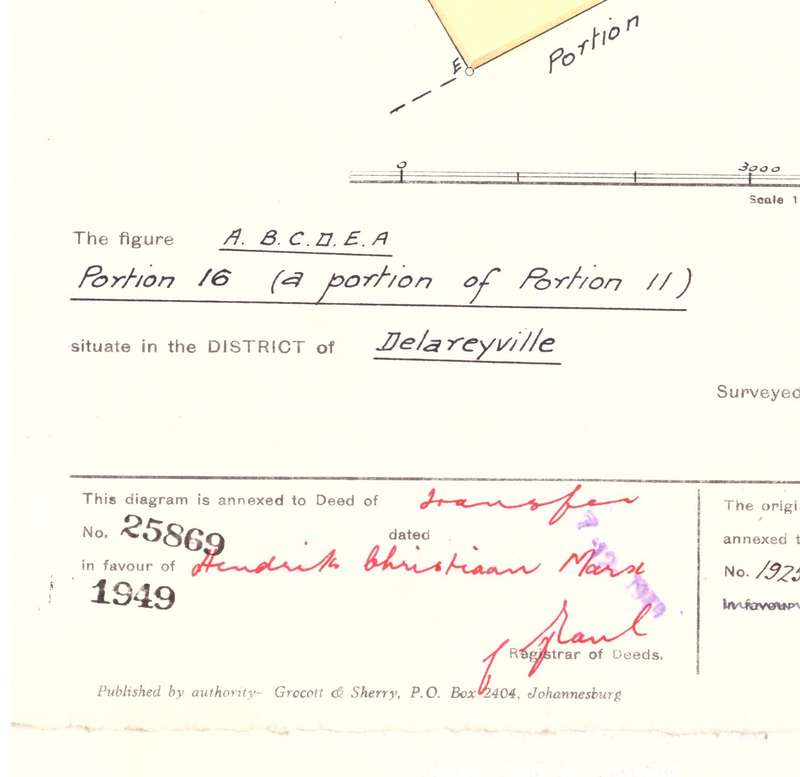 E
Portion
0 3000
Scale 1
The figure A. B. C. D. E. A
Portion 16 (a portion of Portion 11)
situate in the DISTRICT of Delareyville
Surveyed
This diagram is annexed to Deed of Transfer
No. 25869 dated
in favour of Hendrik Christiaan Marx
1949
Registrar of Deeds.
The origi
annexed t
No. 1925
In favour
Published by authority- Grocott & Sherry, P.O. Box 2404, Johannesburg